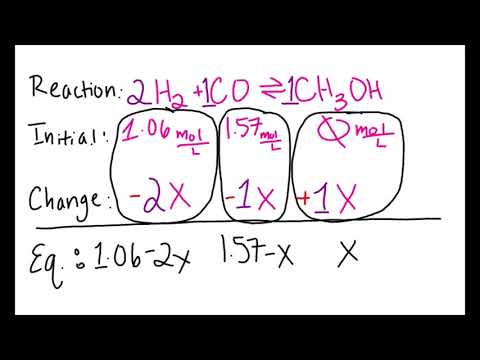 Reaction: 2H₂ + 1CO ⇌ 1CH₃OH
Initial: 1.06 mol/L 1.57 mol/L 0 mol/L
Change: -2X -1X +1X
Eq.: 1.06-2x 1.57-x x